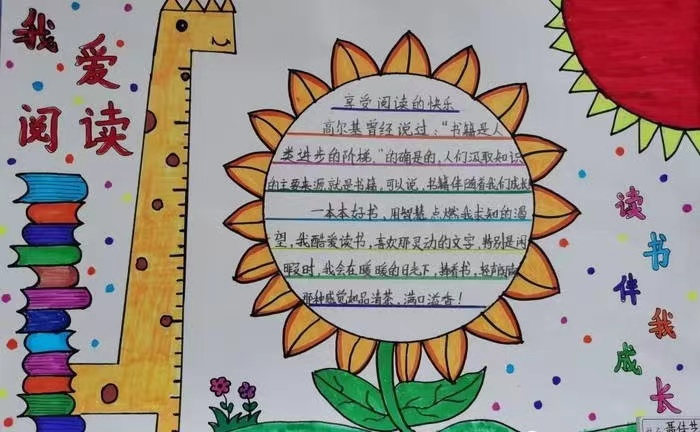 我爱
阅读
享受阅读的快乐
高尔基曾经说过："书籍是人
类进步的阶梯。"的确是的，人们汲取知识
的主要来源就是书籍，可以说，书籍伴随着我们成长
一本本好书，用智慧点燃我求知的渴
望，我酷爱读书，喜欢那灵动的文字，特别是闲
暇时，我会在暖暖的日光下，捧着书，轻声
那种感觉如品清茶，满口溢香！
读书伴我成长